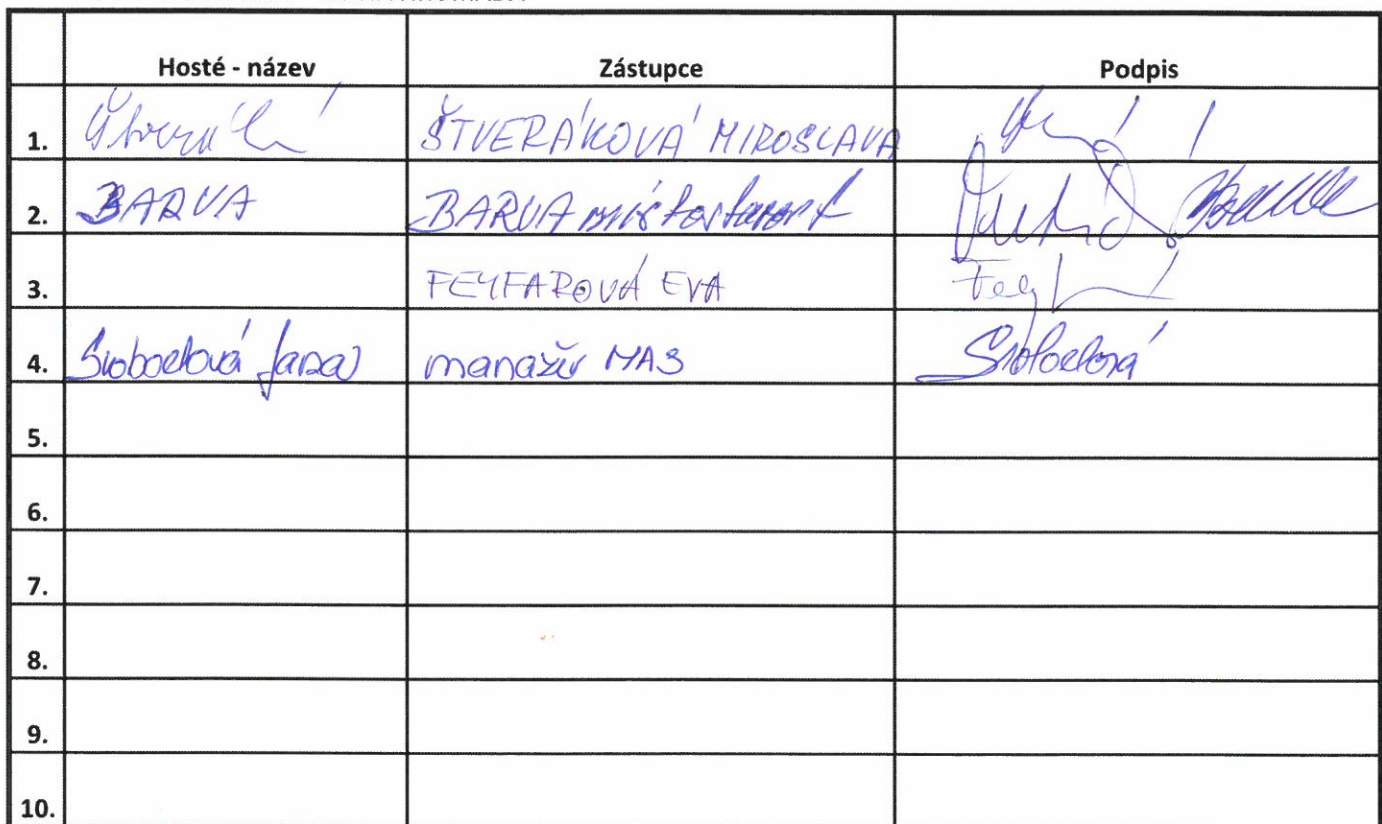 Hosté - název Zástupce Podpis
1. ŠTVERÁKOVÁ MIROSLAVA
2. BARVA BARVA místostarost
3. FEYFAROVÁ EVA
4. Svobodová Jana manažér MAS Svobodová
5.
6.
7.
8.
9.
10.